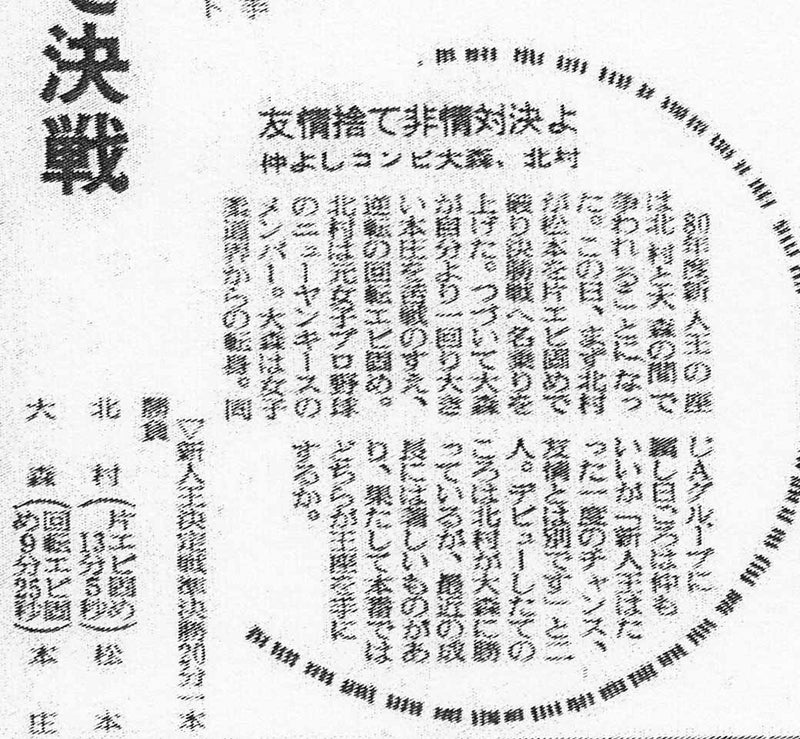 決戦
友情捨て非情対決よ
仲よしコンビ大森、北村
80年度新人王の座
は北村と大森の間で
争われることになっ
た。この日、まず北村
が松本を片エビ固めで
破り決勝戦へ名乗りを
上げた。つづいて大森
が自分より一回り大き
い本庄を苦戦のすえ、
逆転の回転エビ固め。
北村は元女子プロ野球
のニューヤンキースの
メンバー。大森は女子
柔道界からの転身。同
じAグループに
属し日ごろは仲も
いいが「新人王はた
った一度のチャンス、
友情とは別です」と二
人。デビューしたての
ころは北村が大森に勝
っているが、最近の成
長には著しいものがあ
り、果たして本番では
どちらが王座を手に
するか。
▽新人王決定戦準決勝20分一本
勝負
北村(片エビ固め13分5秒)松本
大森(回転エビ固め9分25秒)本庄